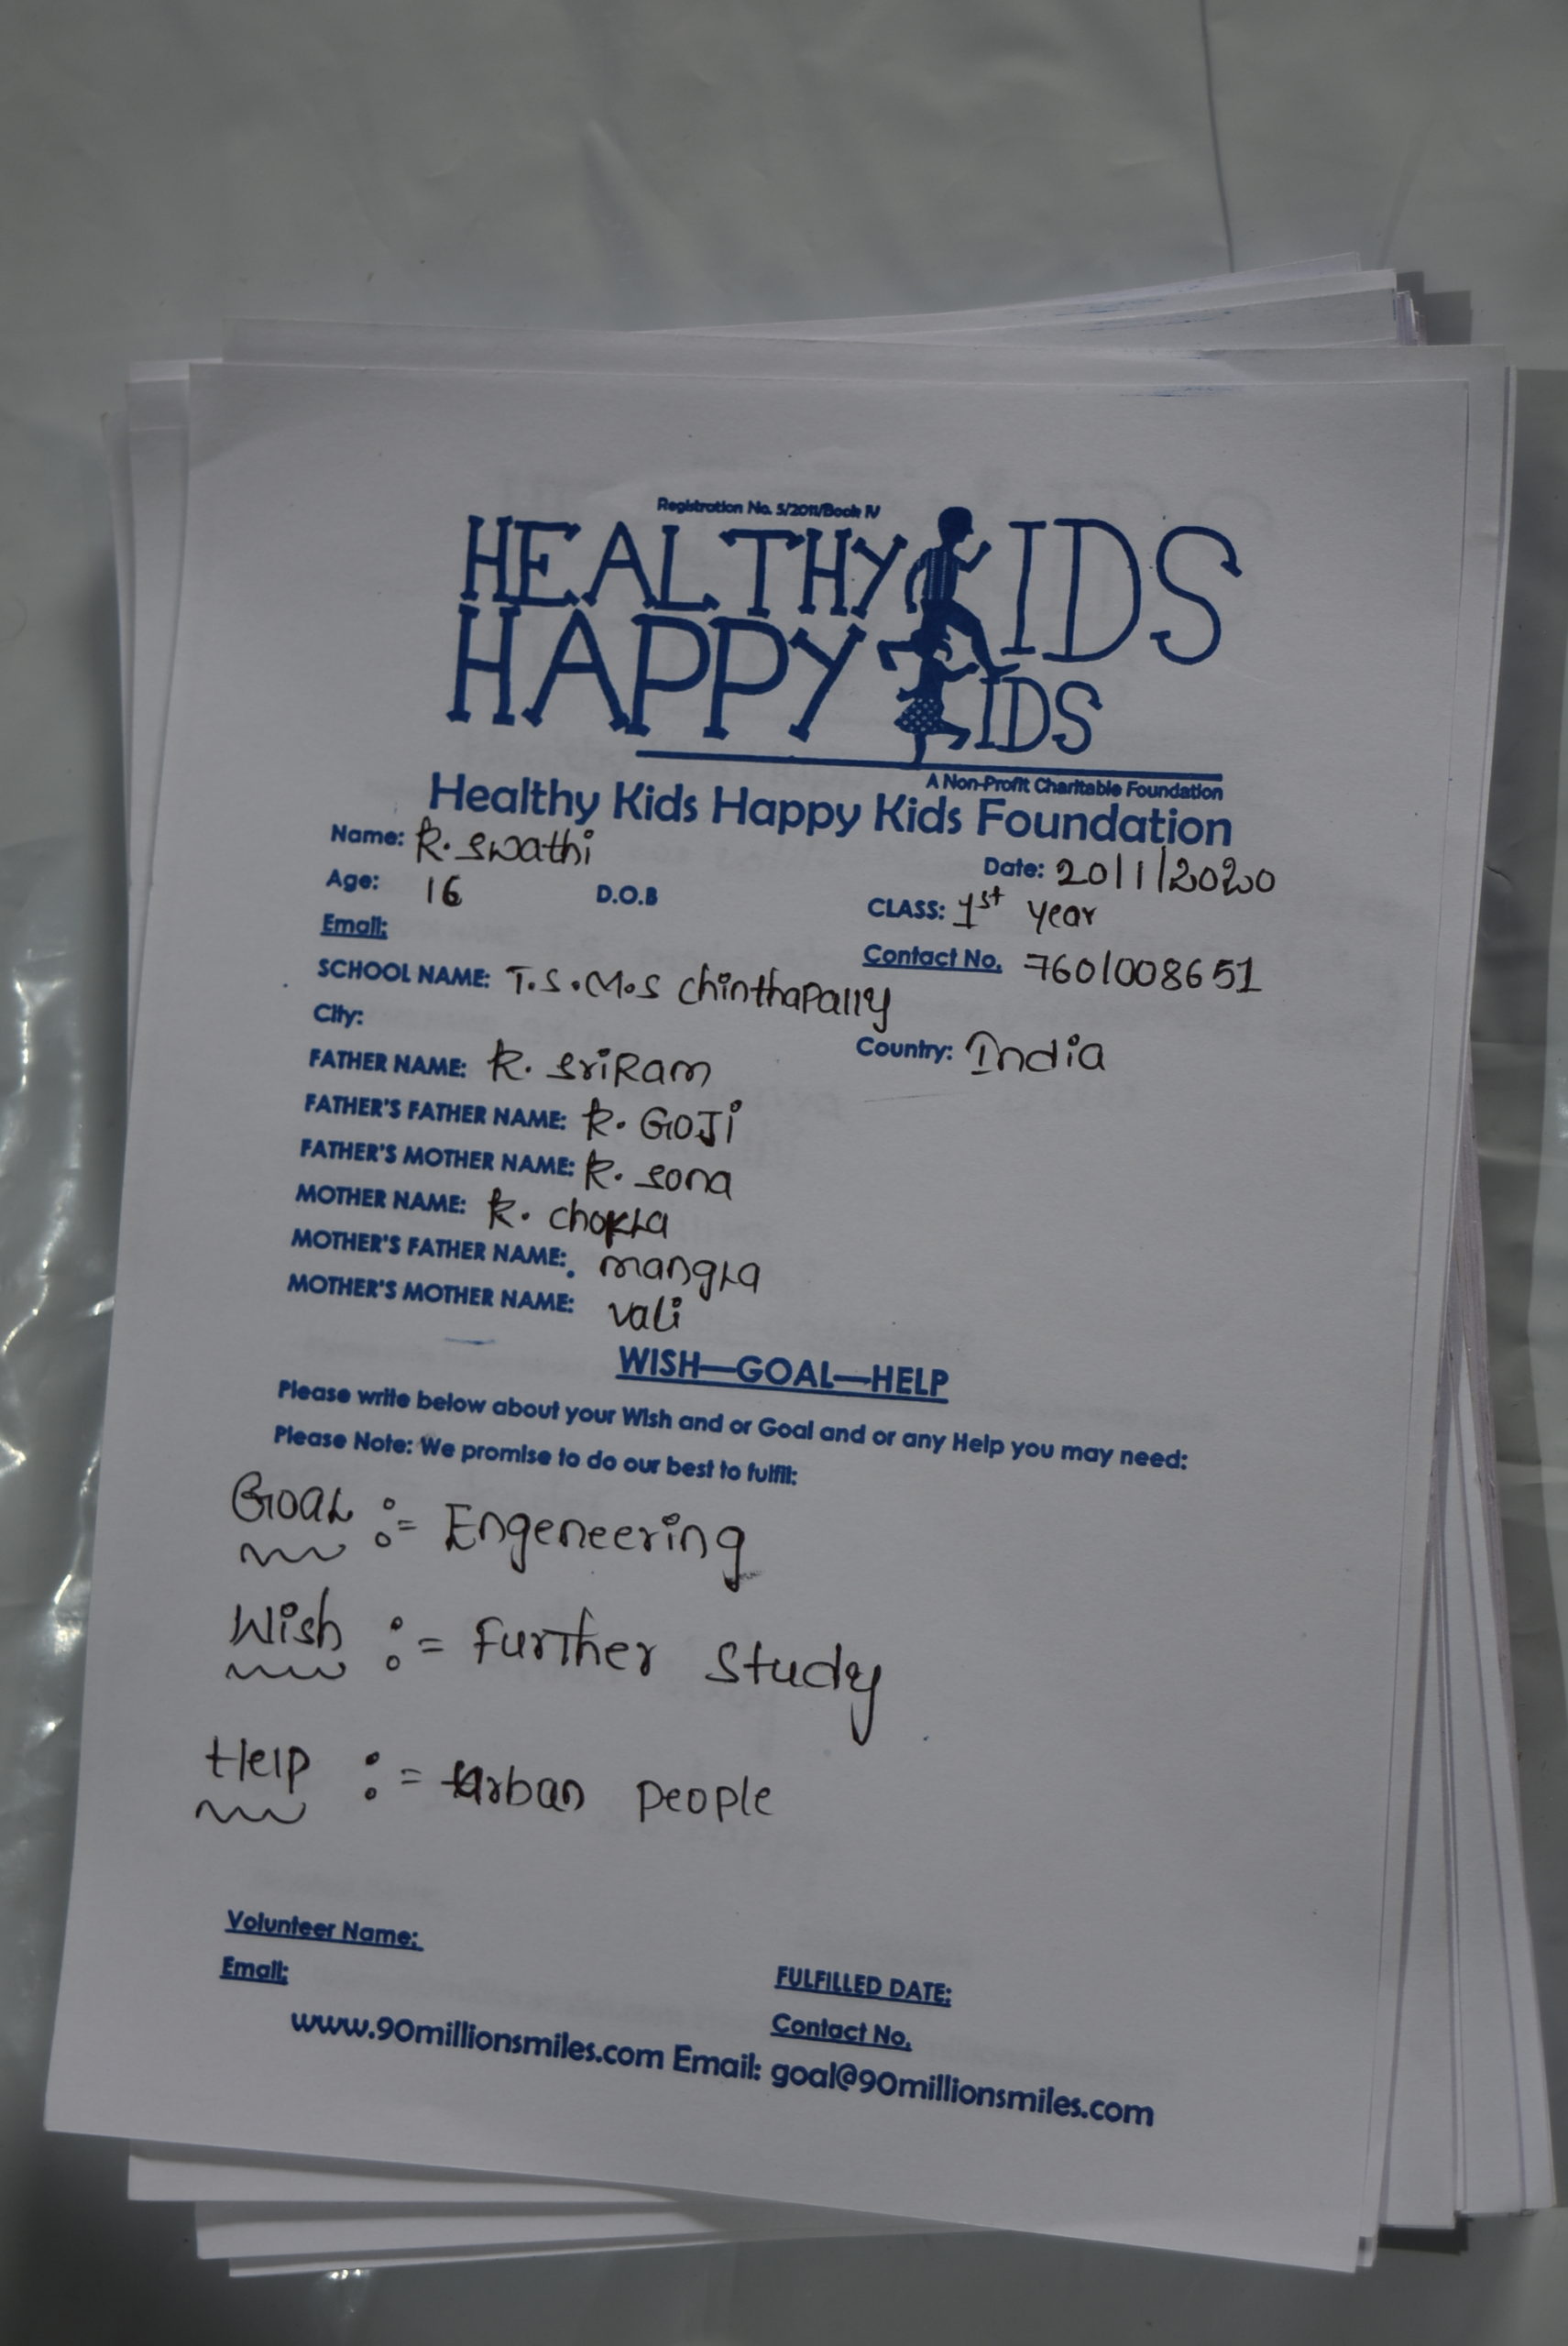 Registration No. 5/2011/Book IV
HEALTHY KIDS
HAPPY KIDS
A Non-Profit Charitable Foundation
Healthy Kids Happy Kids Foundation
Name: R. Swathi
Date: 20/1/2020
Age: 16 D.O.B
CLASS: 1st year
Email:
Contact No. 7601008651
SCHOOL NAME: T.S.M.S Chinthapally
City:
Country: India
FATHER NAME: R. SriRam
FATHER'S FATHER NAME: R. GoJi
FATHER'S MOTHER NAME: R. Sona
MOTHER NAME: R. chokla
MOTHER'S FATHER NAME: mangla
MOTHER'S MOTHER NAME: vali
WISH—GOAL—HELP
Please write below about your Wish and or Goal and or any Help you may need:
Please Note: We promise to do our best to fulfil:
Goal := Engeneering
Wish := Further Study
Help := urban people
Volunteer Name:
Email:
FULFILLED DATE:
Contact No.
www.90millionsmiles.com Email: goal@90millionsmiles.com